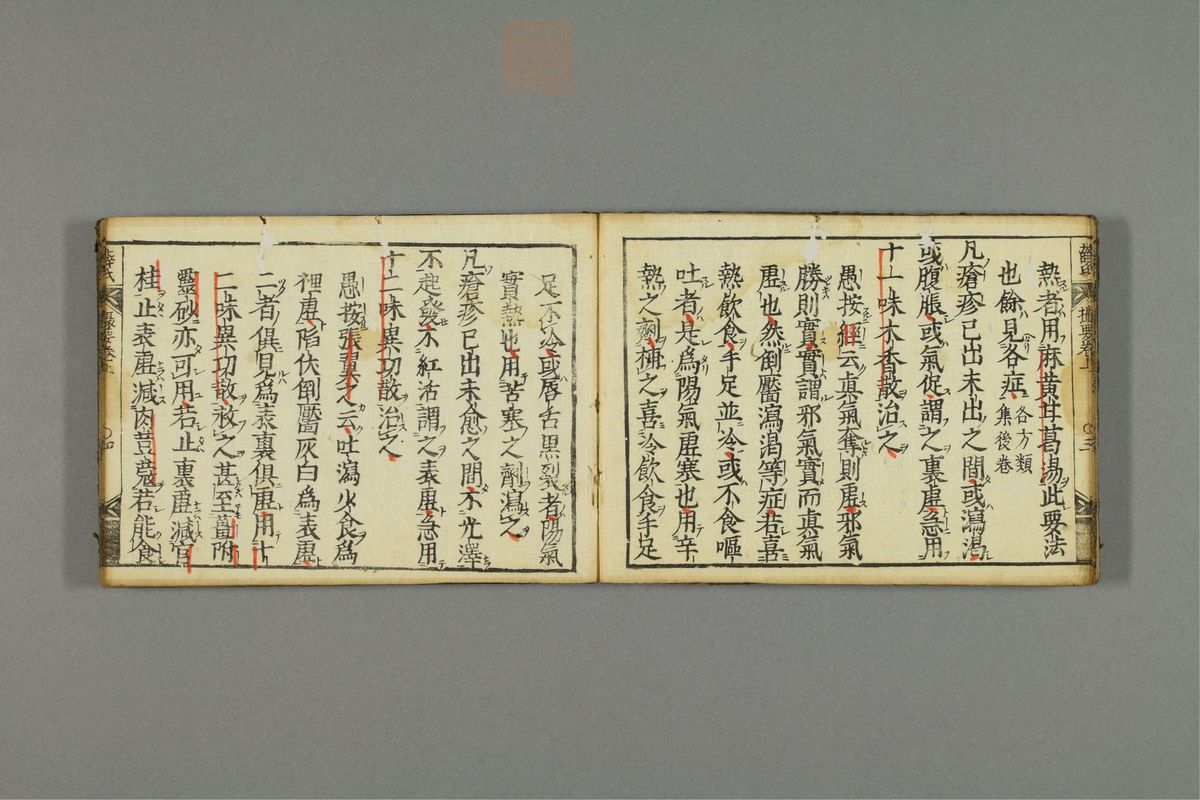 熱者用麻黄甘葛湯此要法
也餘見各症各方類
集後巻
凡瘡疹已出未出之間或瀉渇
或腹脹或氣促謂之裏虚急用
十一味木香散治之
愚按經云真氣奪則虚邪氣
勝則實實謂邪氣實而真氣
虚也然倒靨瀉渇等症若喜
熱飲食手足並冷或不食嘔
吐者是爲陽氣虚寒也用辛
熱之劑補之喜冷飲食手足
足不冷或唇舌黒裂者陽氣
實熱也用苦寒之劑瀉之
凡瘡疹已出未愈之間不光澤
不起發不紅活謂之表虚急用
十二味異功散治之
愚按張翼之云吐瀉少食爲
裡虚陷伏倒靨灰白爲表虚
二者俱見爲表裏俱虚用十
二味異功散救之甚至薑附
靈砂亦可用若止裏虚減官
桂止表虚減肉荳蔲若能食